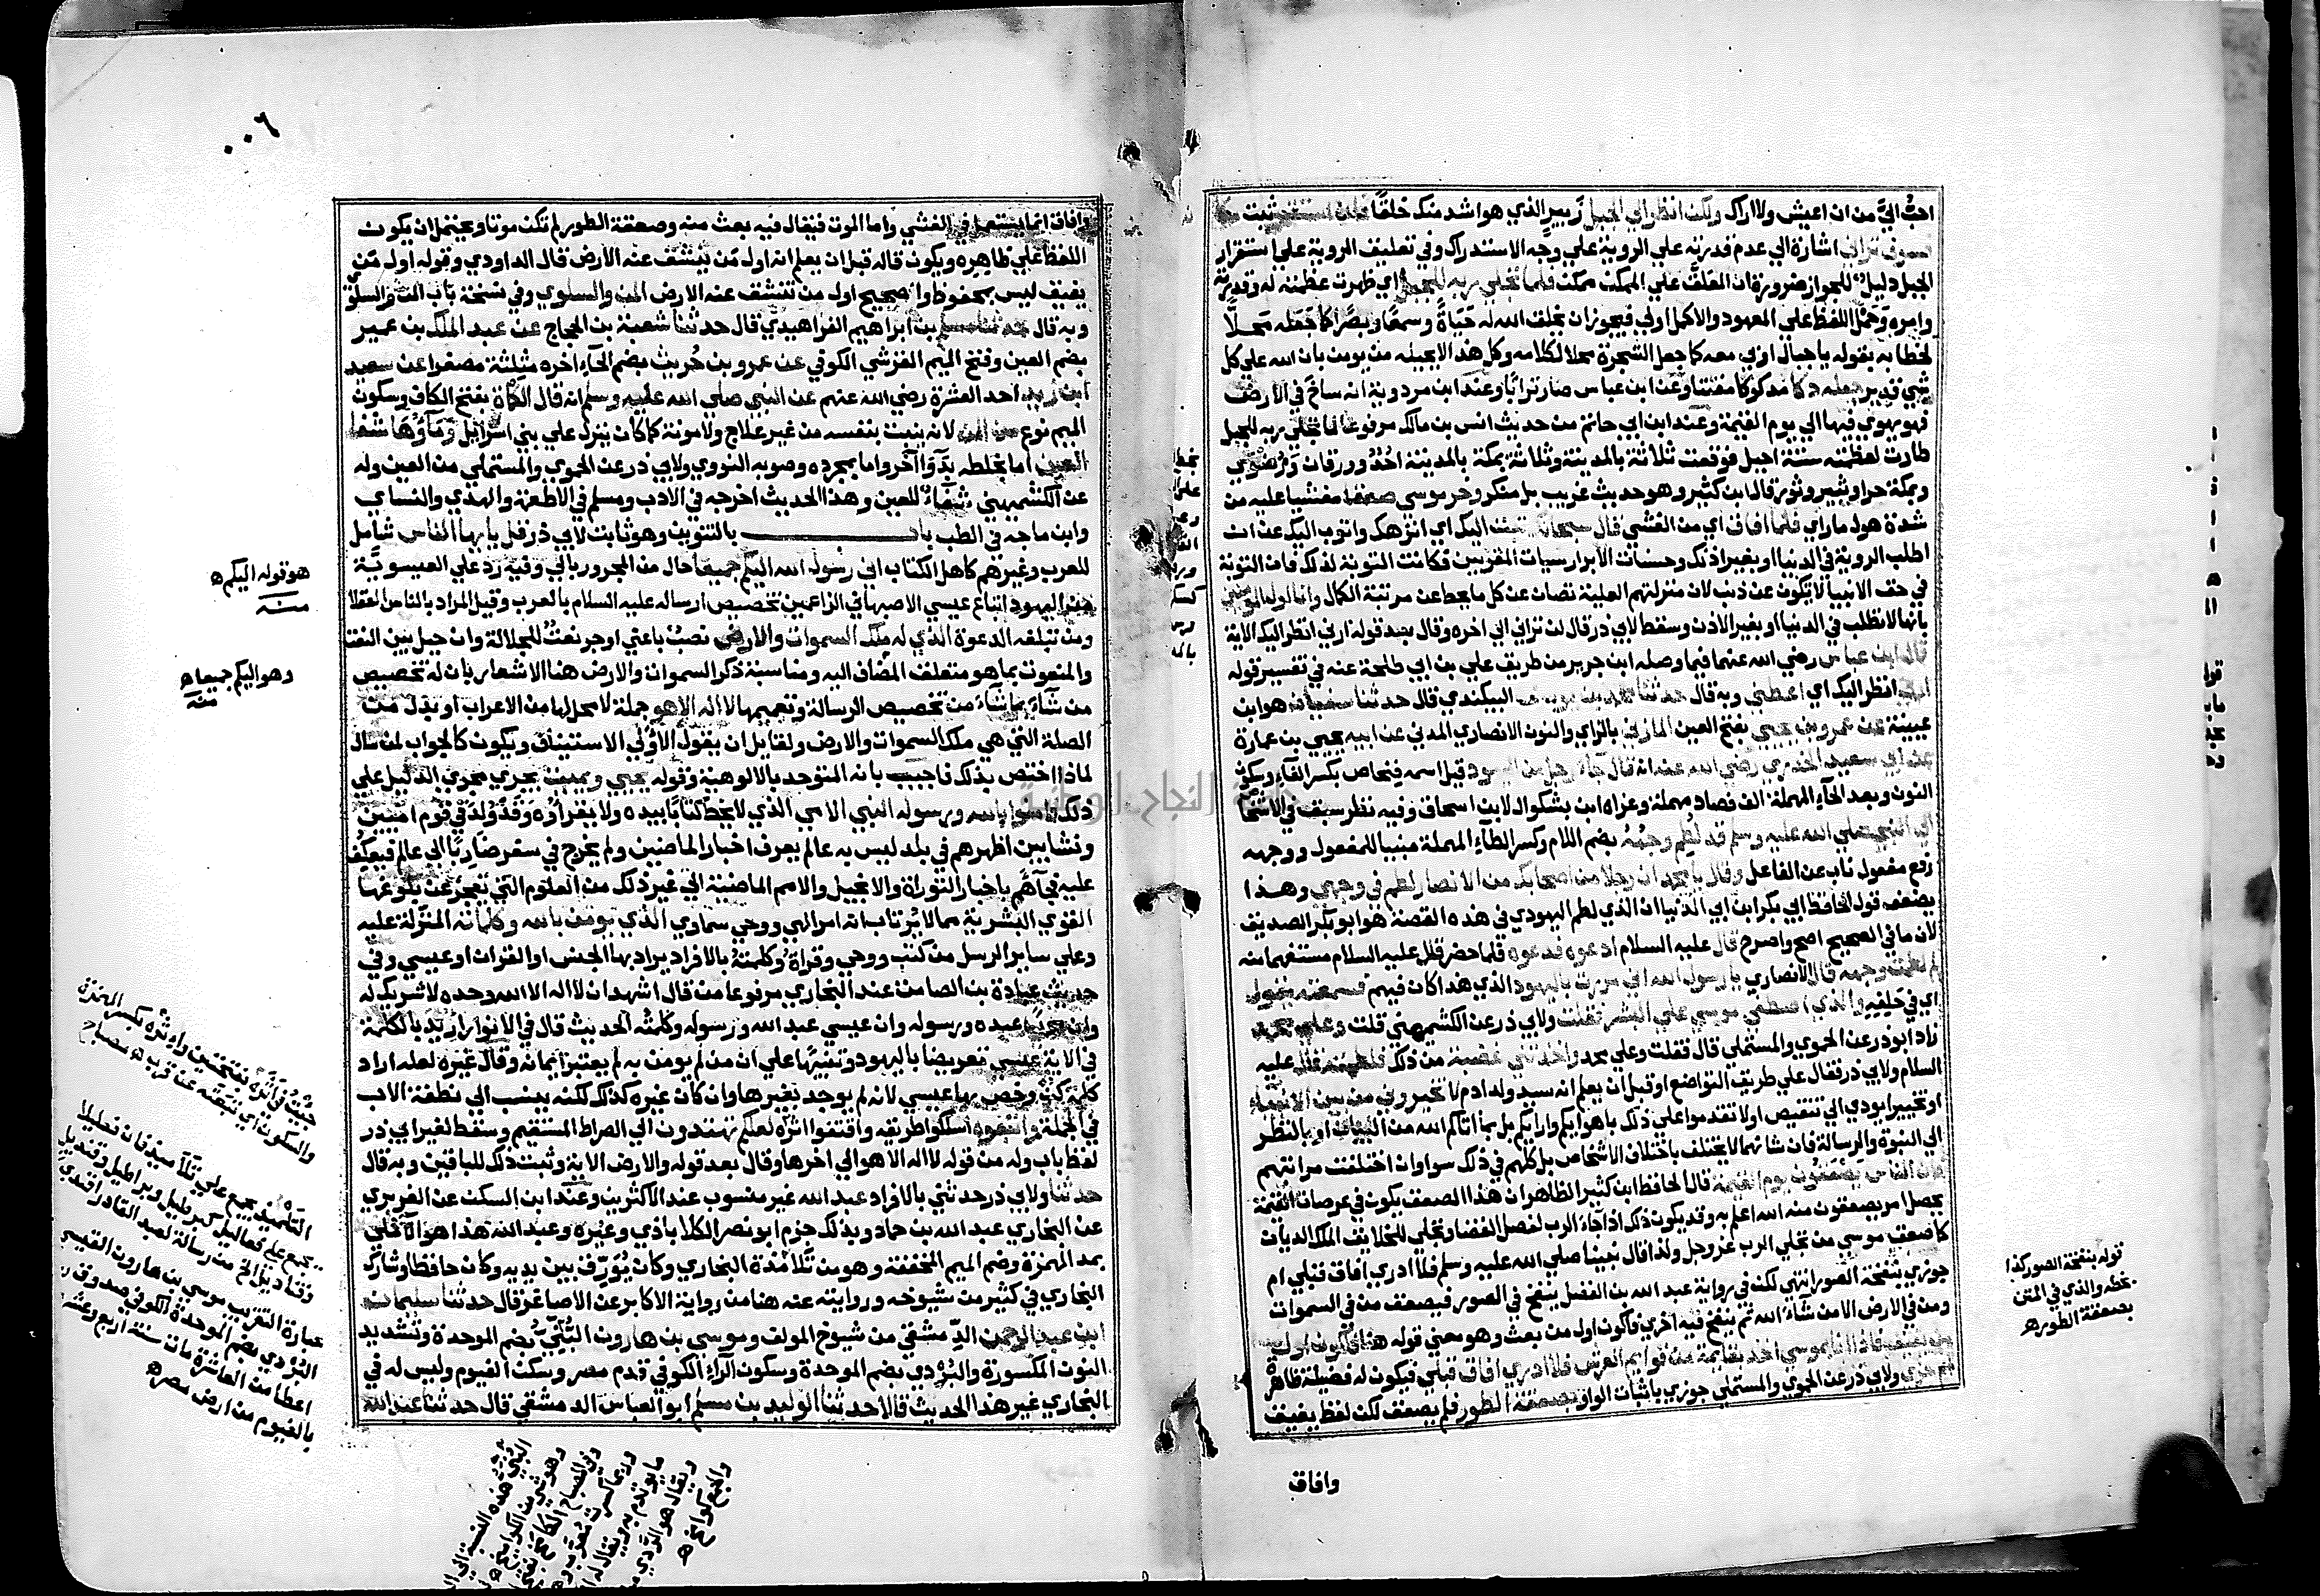 احبُّ اليَّ من ان اعيش ولا اراك ولكن انظر الي الجبل زبير الذي هو اشد منك خلقًا فان استقر ثبت مكانه
فسوف تراني اشارة الي عدم قدرته علي الروية علي وجه الاستدراك وفي تعليق الروية علي استقرار
الجبل دليل للجواز ضرورة ان المعلق علي الممكن ممكن فلما تجلي ربه للجبل اي ظهرت عظمته له وقدرته
وامره وحَمْل اللفظ علي المعهود والاكمل اولي فيجوز ان يخلق الله له حَيَاةً وسمعًا وبصرًا كما جعله محلًا
لخطابه بقوله يا جبال اوبي معه كما جعل الشجرة محلا لكلامه وكل هذا لا يحيله من يومن بان الله علي كل
شي قدير جعله دكا مدكوكا مفتتا وعن ابن عباس صار ترابًا وعند ابن مردوية انه ساخ في الارض
فهو يهوي فيها الي يوم القيمة وعند ابن ابي حاتم من حديث انس بن مالك مرفوعا لما تجلي ربه للجبل
طارت لعظمته ستة اجبل فوقعت ثلاثة بالمدينة وثلاثة بمكة بالمدينة احُدٌ وورقان ورضوي
وبمكة حرا وثبير وثور قال ابن كثير وهو حديث غريب بل منكر وخر موسي صعقا مغشيا عليه من
شدة هول ما راي فلما افاق اي من الغشي قال سبحانك تبت اليك اي انزهك واتوب اليك عن ان
اطلب الروية في الدنيا او بغير اذنك وحسنات الابرار سيات المقربين فكانت التوبة لذلك فان التوبة
في حق الانبيآ لا تكون عن ذنب لان منزلتهم العلية تصان عن كل ما يحط عن مرتبة الكمال وانا اول المومنين
بانها لا تطلب في الدنيا او بغير الاذن وسقط لابي ذر قال لن تراني الي اخره وقال بعد قوله ارني انظر اليك الاية
قال ابن عباس رضي الله عنهما فيما وصله ابن جرير من طريق علي بن ابي طلحة عنه في تفسير قوله
ارني انظر اليك اي اعطني وبه قال حدثنا محمد بن يوسف البيكندي قال حدثنا سفيان هو ابن
عيينة عن عمرو بن يحيي بفتح العين المازني بالزاي والنون الانصاري المدني عن ابيه يحيي بن عمارة
عن ابي سعيد الخدري رضي الله عنه انه قال جآء رجل من اليهود قيل اسمه فنحاص بكسر الفآء وسكون
النون وبعد الحآء المهملة الف فصاد مهملة وعزاه ابن بشكوال لابن اسحاق وفيه نظر سبق في الاشخا
الي النبي صلي الله عليه وسلم قد لُطِم وجهُهُ بضم اللام وكسر الطآء المهملة مبنيا للمفعول ووجهه
رفع مفعول ناب عن الفاعل وقال يا محمد ان رجلا من اصحابك من الانصار لطم في وجهي وهذا
يضعف قول الحافظ ابي بكر ابن ابي الدنيا ان الذي لطم اليهودي في هذه القصة هو ابو بكر الصديق
لان ما في الصحيح اصح واصرح قال عليه السلام ادعوه فدعوه فلما حضر قال عليه السلام مستفهما منه
لم لطمت وجهه قال الانصاري يا رسول الله اني مررت باليهود الذي هذا كان فيهم فسمعته يقول
اي في حَلِفِه والذي اصطفي موسي علي البشر فقلت ولابي ذر عن الكشميهني قلت وعلي محمد
زاد ابو ذر عن الحموي والمستملي قال فقلت وعلي محمد واخذتني غضبة من ذلك فلطمته قال عليه
السلام ولابي ذر فقال علي طريق التواضع او قبل ان يعلم انه سيد ولد ادم لا تخيروني من بين الانبيآء
او تخييرا يودي الي تنقيص او لا تقدموا علي ذلك باهوايكم وارايكم بل بما اتاكم الله من البيان او بالنظر
الي النبوة والرسالة فان شانهما لا يختلف باختلاف الاشخاص بل كلهم في ذلك سوا وان اختلفت مراتبهم
فان الناس يصعقون يوم القيمة قال الحافظ ابن كثير الظاهر ان هذا الصعق يكون في عرصات القيمة
يحصل امر يصعقون منه الله اعلم به وقد يكون ذلك اذا جآء الرب لفصل القضا وتجلي للخلايق الملك الديان
كما صعق موسي من تجلي الرب عز وجل ولذا قال نبينا صلي الله عليه وسلم فلا ادري افاق قبلي ام
جوزي بنفخة الصور انتهي لكن في رواية عبد الله بن الفضل ينفخ في الصور فيصعق من في السموات
ومن في الارض الا من شآء الله ثم ينفخ فيه اخري فاكون اول من بعث وهو معني قوله هنا فاكون اول
من يفيق فاذا انا بموسي اخذ بقايمة من قوايم العرش فلا ادري افاق قبلي فيكون له فضيلة ظاهرة
ام جزي ولابي ذر عن الحموي والمستملي جوزي باثبات الواو بصعقة الطور فلم يصعق لكن لفظ يفيق
وافاق
قوله بنفخة الصور كذا
بخطه والذي في المتن
بصعقة الطور ه
٠٠٦
وافاق انما يستعمل في الغشي واما الموت فيقال فيه بعث منه وصعقة الطور لم تكن موتا ويحتمل ان يكون
اللفظ علي ظاهره ويكون قاله قبل ان يعلم انه اول من تنشق عنه الارض قال الداودي وقوله اول من
يفيق ليس بمحفوظ والصحيح اول من تنشق عنه الارض المن والسلوي وفي نسخة باب المن والسلوي
وبه قال حدثنا مسلم بن ابراهيم الفراهيدي قال حدثنا شعبة بن الحجاج عن عبد الملك بن عمير
بضم العين وفتح الميم القرشي الكوفي عن عمرو بن حُريث بضم الحآء اخره مثلثة مصغرا عن سعيد
ابن زيد احد العشرة رضي الله عنهم عن النبي صلي الله عليه وسلم انه قال الكمأة بفتح الكاف وسكون
الميم نوع من المن لانه ينبت بنفسه من غير علاج ولا مونة كما كان ينزل علي بني اسرايل ومآوها شفا
العين اما بخلطه بدَوَآء اخر واما بمجرده وصوبه النووي ولابي ذر عن الحموي والمستملي من العين وله
عن الكشميهني شفآء للعين وهذا الحديث اخرجه في الادب ومسلم في الاطعمة والترمذي والنساي
وابن ماجه في الطب باب بالتنوين وهو ثابت لابي ذر قل يا يها الناس شامل
للعرب وغيرهم كاهل الكتاب اني رسول الله اليكم جميعا حال من المجرور بالي وفيه رد علي العيسويَّة
من اليهود اتباع عيسي الاصبهاني الزاعمين تخصيص ارساله عليه السلام بالعرب وقيل المراد بالناس العقلا
ومن تبلغه الدعوة الذي له ملك السموات والارض نصبٌ باعني او جر نعتٌ للجلالة وان حيل بين النعت
والمنعوت بما هو متعلق المضاف اليه ومناسبة ذكر السموات والارض هنا الاشعار بان له تخصيص
من شآء بما شآء من تخصيص الرسالة وتعميمها لا اله الا هو جملة لا محل لها من الاعراب او بدل من
الصلة التي هي ملك السموات والارض ولقايل ان يقول الاولي الاستيناف ويكون كالجواب لمن سال
لماذا اختص بذلك فاجيب بانه المتوحد بالالوهية وقوله يحيي ويميت يجري مجري الدليل علي
ذلك فامنوا بالله ورسوله النبي الامي الذي لا يخط كتابا بيده ولا يقراؤه وقد وُلد في قوم اميين
ونشا بين اظهرهم في بلد ليس به عالم يعرف اخبار الماضين ولم يخرج في سفر ضاربًا الي عالم فيعكف
عليه فجآهم باخبار التوراة والانجيل والامم الماضية الي غير ذلك من العلوم التي تعجز عن بلوغها
القوي البشرية مما لا يُرتاب انه امر الهي ووحي سماوي الذي يومن بالله وكلماته المنزلة عليه
وعلي ساير الرسل من كتب ووحي وقراة وكلمته بالافراد يراد بها الجنس او القران او عيسي وفي
حديث عبادة بن الصامت عند البخاري مرفوعا من قال اشهد ان لا اله الا الله وحده لا شريك له
وان محمدًا عبده ورسوله وان عيسي عبد الله ورسوله وكلمتُه الحديث قال في الانوار اريد بالكلمة
في الاية عيسي تعريضا باليهود وتنبيها علي ان من لم يومن به لم يعتبر ايمانه وقال غيره لعله اراد
كلمة كن وخص بها عيسي لانه لم يوجد بغيرها وان كان غيره كذلك لكنه ينسب الي نطفة الاب
في الجملة واتبعوه اسلكوا طريقه واقتفوا اثرَه لعلكم تهتدون الي الصراط المستقيم وسقط لغير ابي ذر
لفظ باب وله من قوله لا اله الا هو الي اخرها وقال بعد قوله والارض الاية وثبت ذلك للباقين وبه قال
حدثنا ولابي ذر حدثني بالافراد عبد الله غير منسوب عند الاكثرين وعند ابن السكن عن الفربري
عن البخاري عبد الله بن حماد وبذلك جزم ابو نصر الكلاباذي وغيره وعبد الله هذا هو الآمُلي
بمد الهمزة وضم الميم المخففة وهو من تلامذة البخاري وكان يُوَرِّق بين يديه وكان حافظا وشارك
البخاري في كثير من شيوخه وروايته عنه هنا من رواية الاكابر عن الاصاغر قال حدثنا سليمان
ابن عبد الرحمن الدمشقي من شيوخ المولف وموسي بن هارون البُنِّيُّ بضم الموحدة وتشديد
النون المكسورة والبُرْدي بضم الموحدة وسكون الراء الكوفي قدم مصر وسكن الفيوم وليس له في
البخاري غير هذا الحديث قالا حدثنا الوليد بن مسلم ابو العباس الدمشقي قال حدثنا عبد الله
هو قوله اليكم ه
منه
وهو اليكم جميعا ه
منه
جيت في اثَره بفتحتين واِثْره بكسر الهمزة
والسكون اي تبعته عن قرب ه مصباح
التلميذ يجمع علي تلاميذ فان فعليلا
يجمع علي فعاليل كبرطيل وبراطيل وقنديل
وقناديل الخ من رسالة لعبد القادر افندي
عبارة التقريب موسي بن هارون القيسي
البُرْدي بضم الموحدة الكوفي صدوق
اخطا من العاشرة مات سنة اربع وعشر
بالفيوم من ارض مصر ه